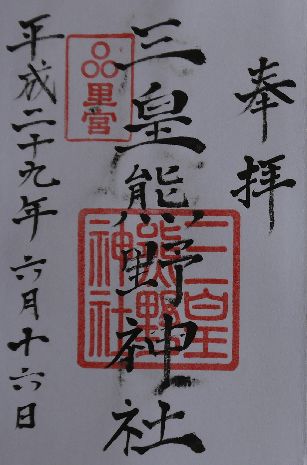 奉拝
三皇熊野神社
平成二十九年六月十六日
品里宮
三皇熊野神社